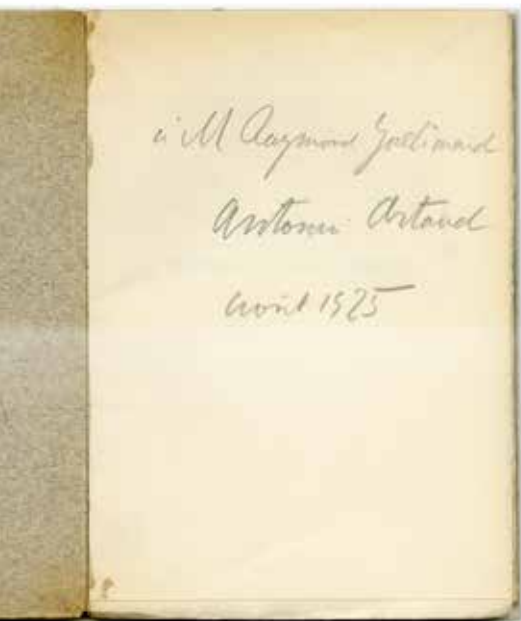 à M Raymond Gallimard
Antonin Artaud
Août 1925